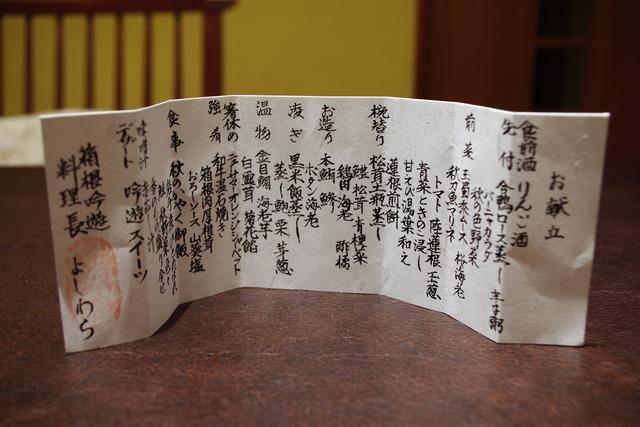 お献立
食前酒 りんご酒
先付 合鴨ロース蒸し 辛子粥
バーニャカウダ
秋の色野菜
前菜 玉蜀黍ムース 桜海老
秋刀魚マリネ
トマト 陸蓮根 玉葱
青菜ときのこ浸し
甘えび湯葉和え
蓮根煎餅
椀替り 松茸土瓶蒸し
鱧 松茸 青梗菜
鶏団 海老 酢橘
お造り 本鮪 鯵
ボタン海老
凌ぎ 黒米飯蒸し
蒸し鮑 栗 芽葱
温物 金目鯛 海老芋
白霊茸 菊花餡
箸休め ニューサマーオレンジシャーベット
強肴 和牛溶石焼き
箱根肉厚椎茸
おろしソース 山葵塩
食事 秋の
御飯
味噌汁
デザート 吟遊スイーツ
箱根吟遊
料理長 よしわら